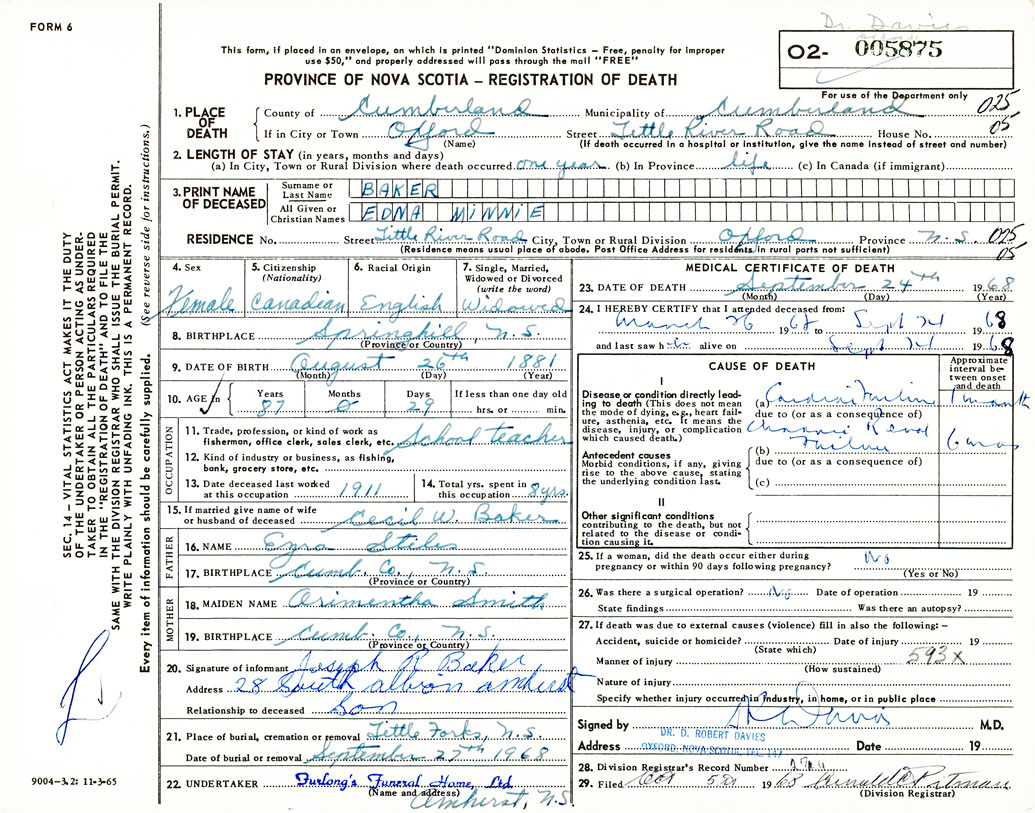 FORM 6
Dr. Davies
This form, if placed in an envelope, on which is printed "Dominion Statistics – Free, penalty for improper
use $50," and properly addressed will pass through the mail "FREE"
O2- 005875
PROVINCE OF NOVA SCOTIA – REGISTRATION OF DEATH
For use of the Department only
025
05
1. PLACE OF DEATH
County of Cumberland Municipality of Cumberland
If in City or Town Oxford Street Little River Road House No.
(Name) (If death occurred in a hospital or institution, give the name instead of street and number)
2. LENGTH OF STAY (in years, months and days)
(a) In City, Town or Rural Division where death occurred one year (b) In Province life (c) In Canada (if immigrant)
3. PRINT NAME OF DECEASED
Surname or Last Name BAKER
All Given or Christian Names EDNA MINNIE
RESIDENCE No. Street Little River Road City, Town or Rural Division Oxford Province N.S.
025
05
(Residence means usual place of abode. Post Office Address for residents in rural parts not sufficient)
SEC. 14 – VITAL STATISTICS ACT MAKES IT THE DUTY
OF THE UNDERTAKER OR PERSON ACTING AS UNDER-
TAKER TO OBTAIN ALL THE PARTICULARS REQUIRED
IN THE "REGISTRATION OF DEATH" AND TO FILE THE
SAME WITH THE DIVISION REGISTRAR WHO SHALL ISSUE THE BURIAL PERMIT.
WRITE PLAINLY WITH UNFADING INK. THIS IS A PERMANENT RECORD.
Every item of information should be carefully supplied. (See reverse side for instructions.)
4. Sex
Female
5. Citizenship
(Nationality)
Canadian
6. Racial Origin
English
7. Single, Married,
Widowed or Divorced
(write the word)
Widowed
8. BIRTHPLACE Springhill, N.S.
(Province or Country)
9. DATE OF BIRTH August 26th 1881
(Month) (Day) (Year)
10. AGE in Years 87 Months 0 Days 29 If less than one day old
hrs. or min.
OCCUPATION
11. Trade, profession, or kind of work as
fisherman, office clerk, sales clerk, etc. School teacher
12. Kind of industry or business, as fishing,
bank, grocery store, etc.
13. Date deceased last worked
at this occupation 1911
14. Total yrs. spent in
this occupation 8 yrs.
15. If married give name of wife
or husband of deceased Cecil W. Baker
FATHER
16. NAME Ezra Stiles
17. BIRTHPLACE Cumb. Co., N.S.
(Province or Country)
MOTHER
18. MAIDEN NAME Arimentha Smith
19. BIRTHPLACE Cumb. Co., N.S.
(Province or Country)
20. Signature of informant Joseph R Baker
Address 28 South albion amherst
Relationship to deceased Son
21. Place of burial, cremation or removal Little Forks, N.S.
Date of burial or removal September 27th 1968
22. UNDERTAKER Furlong's Funeral Home, Ltd.
(Name and address) Amherst, N.S.
9004–3.2: 11-3-65
MEDICAL CERTIFICATE OF DEATH
23. DATE OF DEATH September 24th 1968
(Month) (Day) (Year)
24. I HEREBY CERTIFY that I attended deceased from:
March 26 1968 to Sept 24 1968
and last saw her alive on Sept 24 1968
CAUSE OF DEATH
Approximate interval between onset and death
I
Disease or condition directly lead-
ing to death (This does not mean
the mode of dying, e.g., heart fail-
ure, asthenia, etc. It means the
disease, injury, or complication
which caused death.)
(a) Cardiac Failure 1 month
due to (or as a consequence of)
Chronic Renal
(b) Failure 6 mos
due to (or as a consequence of)
(c)
Antecedent causes
Morbid conditions, if any, giving
rise to the above cause, stating
the underlying condition last.
II
Other significant conditions
contributing to the death, but not
related to the disease or condi-
tion causing it.
25. If a woman, did the death occur either during
pregnancy or within 90 days following pregnancy? No
(Yes or No)
26. Was there a surgical operation? No Date of operation 19
State findings Was there an autopsy?
27. If death was due to external causes (violence) fill in also the following: –
Accident, suicide or homicide? Date of injury 19
(State which)
593X
Manner of injury
(How sustained)
Nature of injury
Specify whether injury occurred in industry, in home, or in public place
Signed by D R Davies M.D.
DR. D. ROBERT DAVIES
Address OXFORD, NOVA SCOTIA, Date 19
28. Division Registrar's Record Number
29. Filed Oct 5th 1968
(Division Registrar)